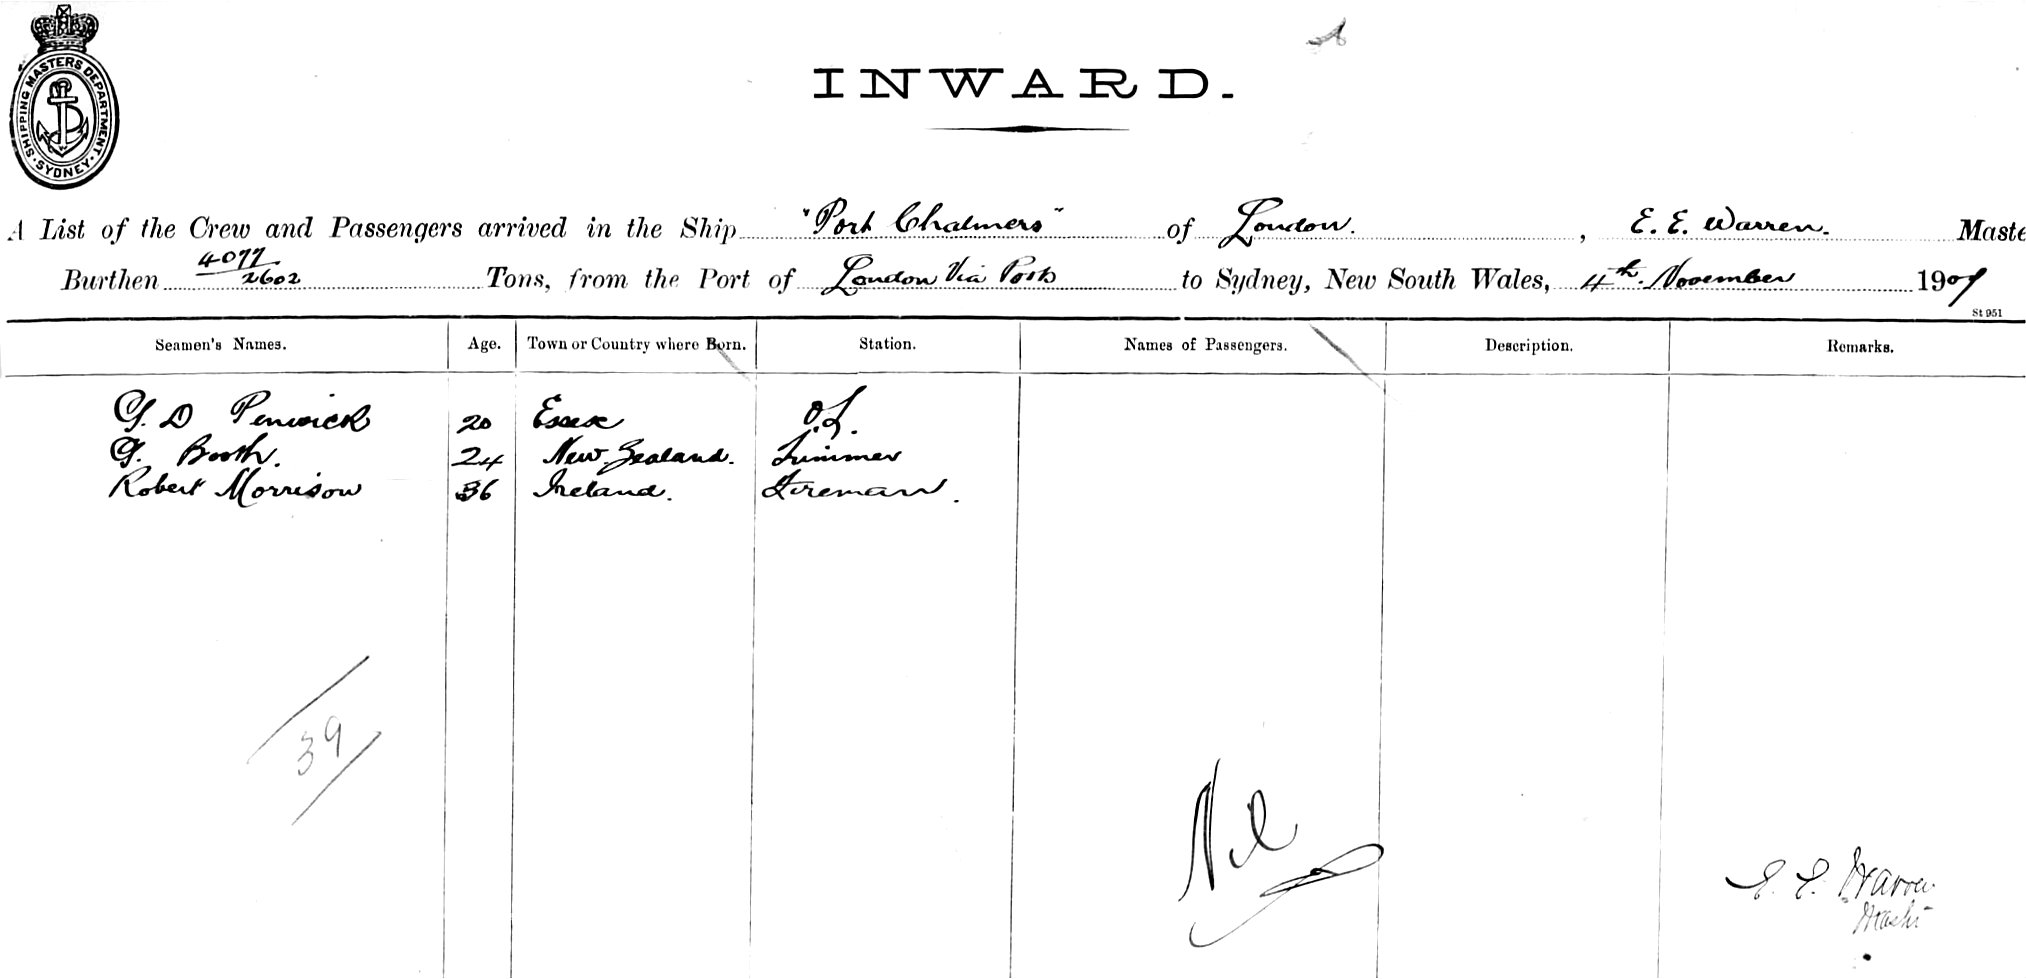 SHIPPING MASTERS DEPARTMENT
· SYDNEY ·
INWARD.
A List of the Crew and Passengers arrived in the Ship "Port Chalmers" of London. , E. E. Warren. Maste
Burthen 4077/2602 Tons, from the Port of London Via Ports to Sydney, New South Wales, 4th. November 1907
St 951
Seamen's Names. Age. Town or Country where Born. Station. Names of Passengers. Description. Remarks.
G. D Penwick 20 Essex O.S.
G. Booth. 24 New Zealand. Trimmer
Robert Morrison 36 Ireland. Fireman.
39
Nil
E. E. Warren